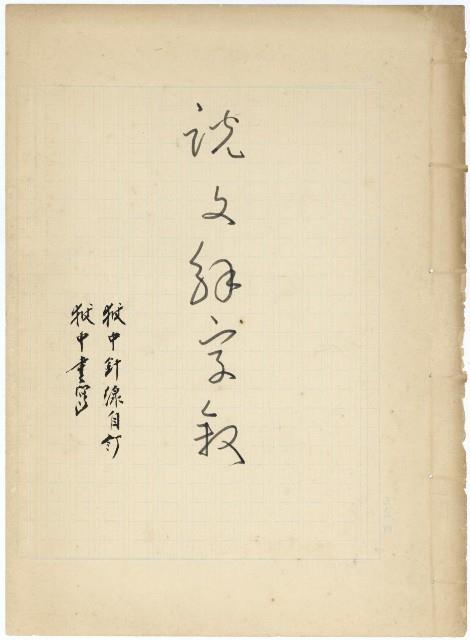 說文解字敘
獄中針線自訂
獄中書寫